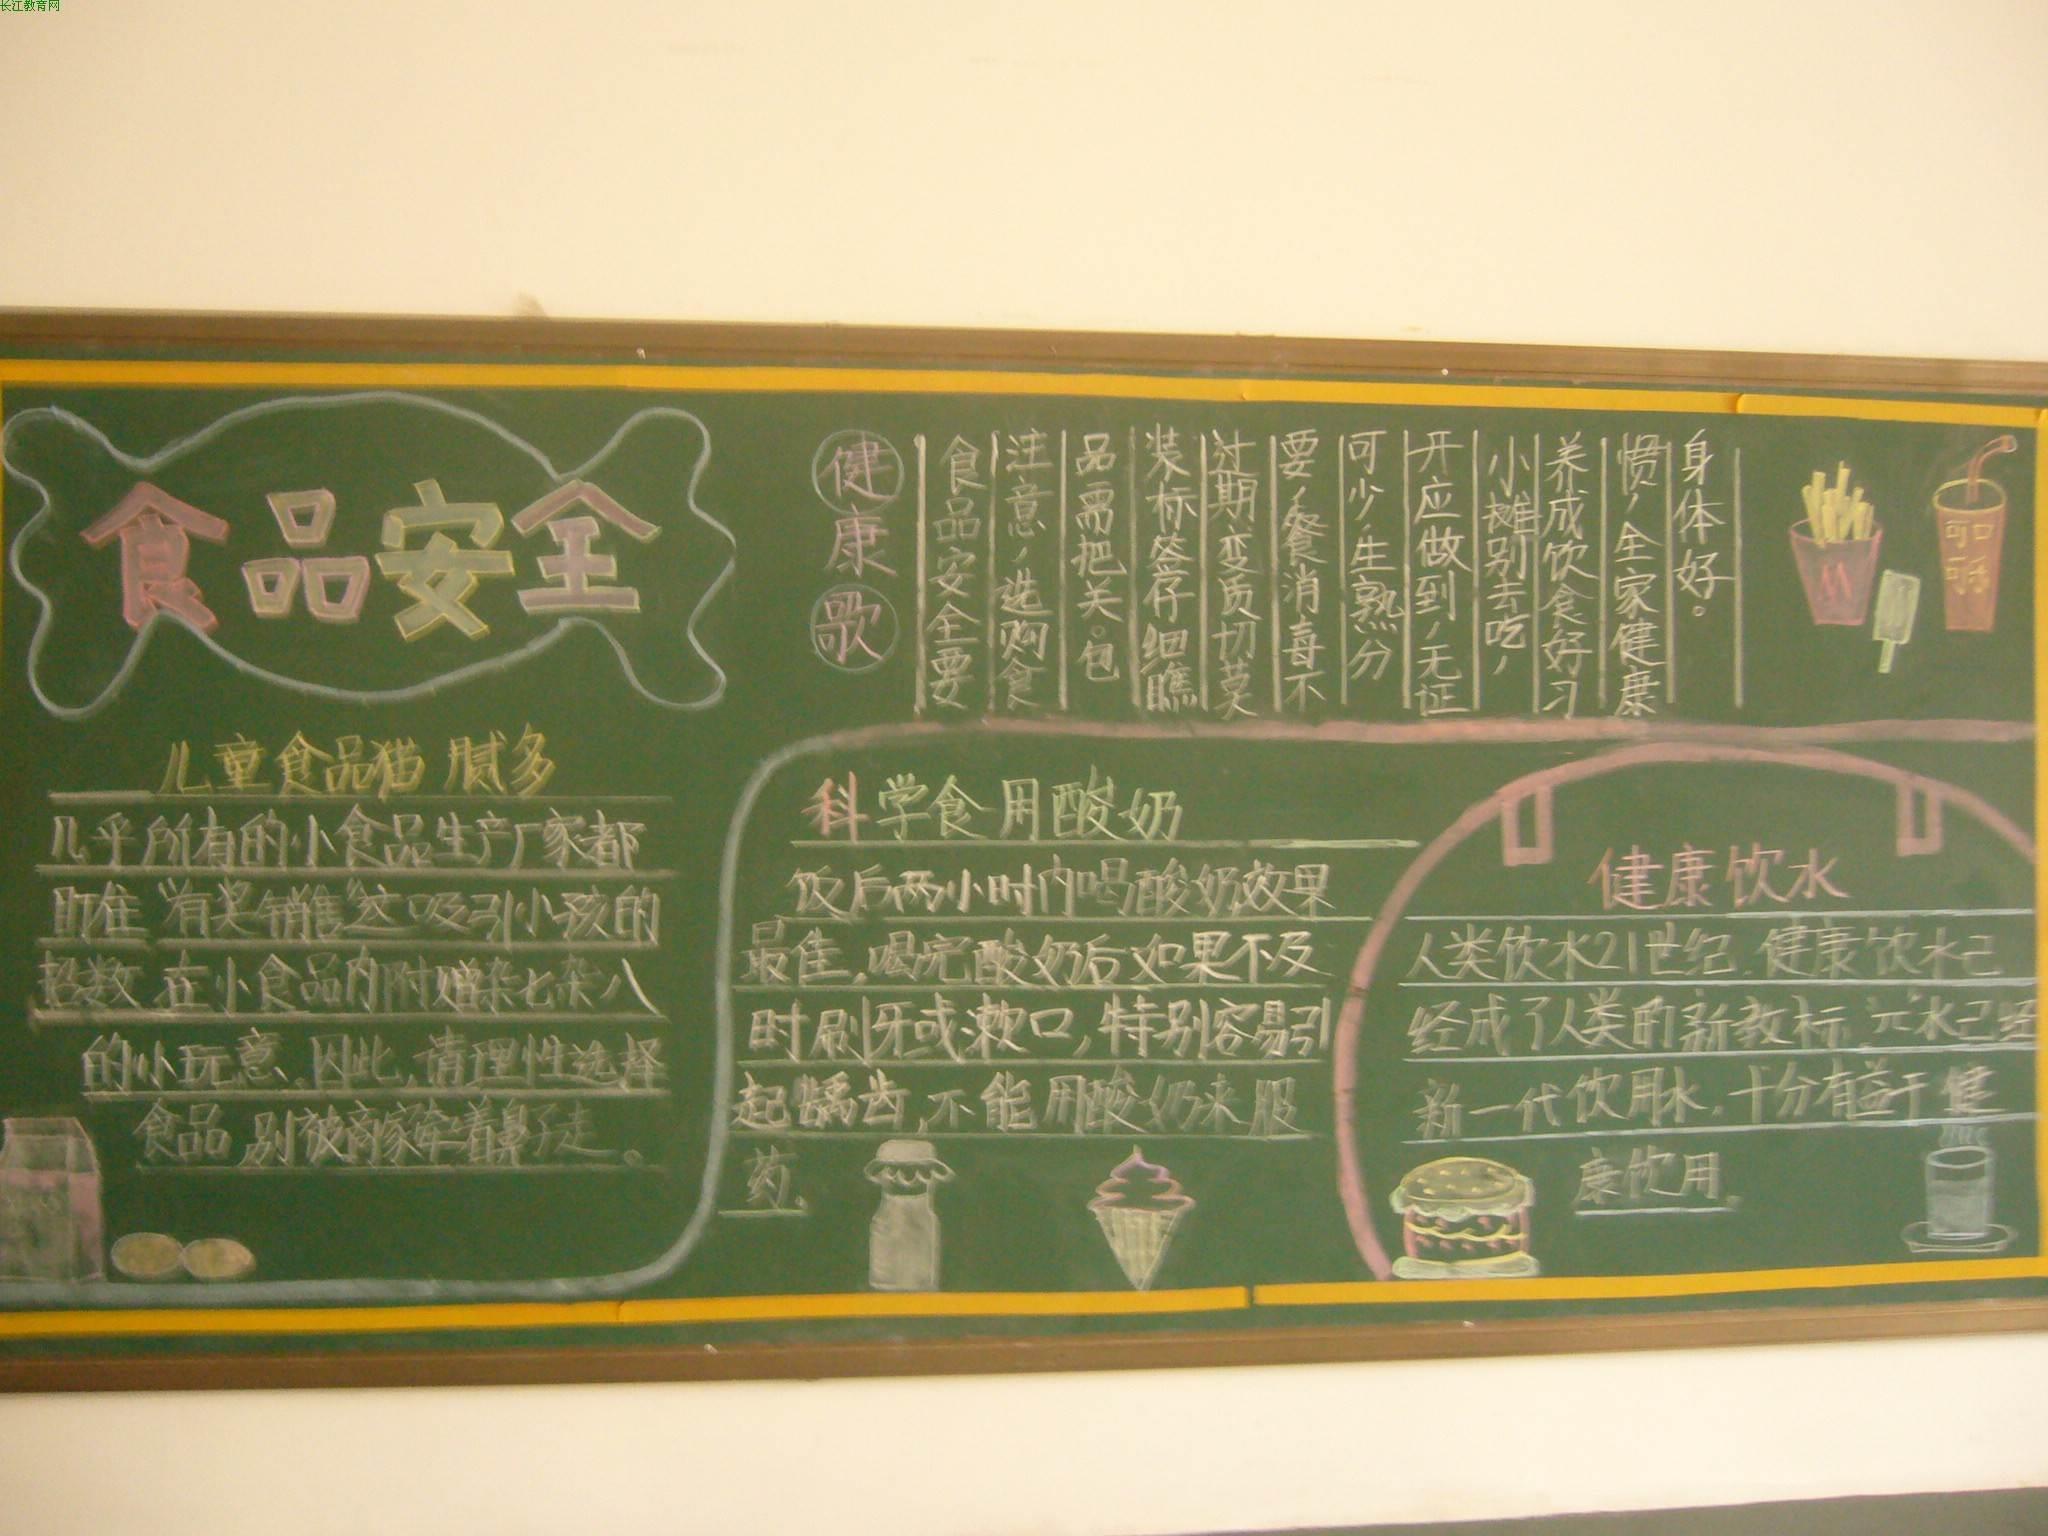 长江教育网
食品安全
健康歌
食品安全要
注意,选购食
品需把关。包
装标签仔细瞧
过期变质切莫
要,餐消毒不
可少,生熟分
开应做到,无证
小摊别去吃,
养成饮食好习
惯,全家健康
身体好。
可口
可乐
儿童食品猫腻多
几乎所有的小食品生产厂家都
盯住“有奖销售”这吸引小孩的
招数,在小食品内附赠杂七杂八
的小玩意。因此,请理性选择
食品,别被商家牵着鼻子走。
科学食用酸奶
饭后两小时内喝酸奶效果
最佳,喝完酸奶后如果不及
时刷牙或漱口,特别容易引
起龋齿,不能用酸奶来服
药。
健康饮水
人类饮水21世纪,健康饮水已
经成了人类的新教标,
新一代饮用水,十分有益于健
康饮用。